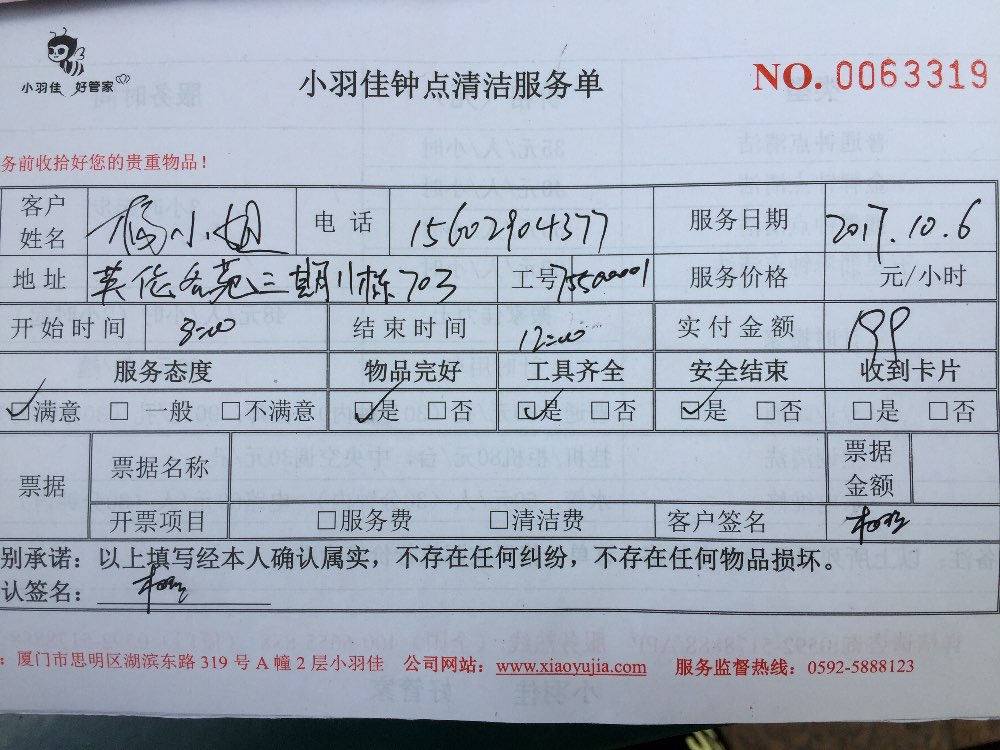 小羽佳 好管家
小羽佳钟点清洁服务单
NO. 0063319
务前收拾好您的贵重物品！
客户姓名 杨小姐 电话 15602904377 服务日期 2017.10.6
地址 三期11栋703 工号 服务价格 元/小时
开始时间 8:00 结束时间 12:00 实付金额 199
服务态度 物品完好 工具齐全 安全结束 收到卡片
☑满意 □一般 □不满意 ☑是 □否 ☑是 □否 ☑是 □否 □是 □否
票据 票据名称 票据金额
开票项目 □服务费 □清洁费 客户签名
别承诺：以上填写经本人确认属实，不存在任何纠纷，不存在任何物品损坏。
认签名：
：厦门市思明区湖滨东路 319 号 A 幢 2 层小羽佳 公司网站：www.xiaoyujia.com 服务监督热线：0592-5888123